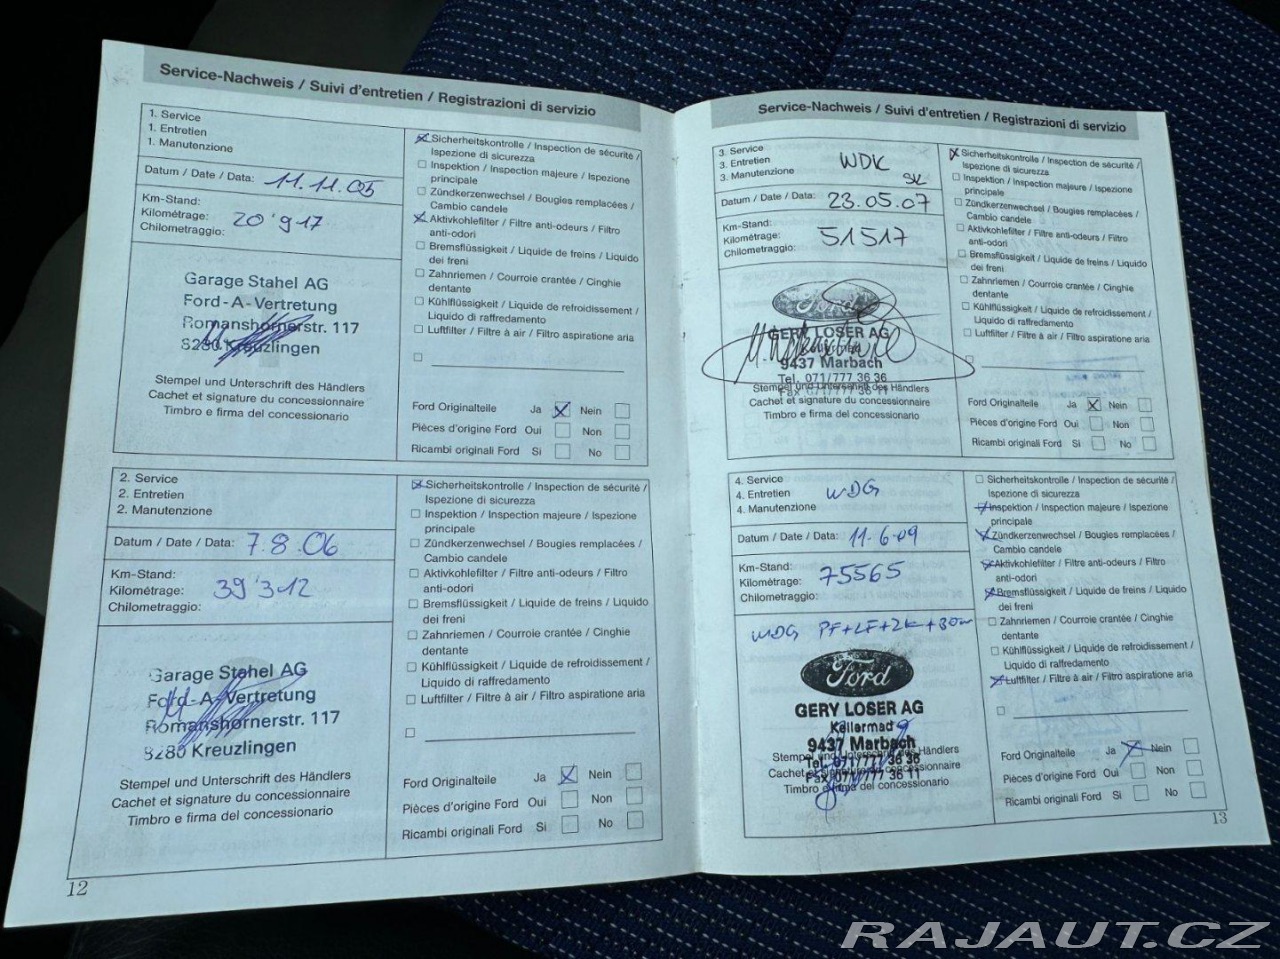 Service-Nachweis / Suivi d'entretien / Registrazioni di servizio
1. Service
1. Entretien
1. Manutenzione
Datum / Date / Data: 11.11.05
Km-Stand:
Kilométrage: 20'917
Chilometraggio:
Garage Stahel AG
Ford-A-Vertretung
Romanshornerstr. 117
8280 Kreuzlingen
Stempel und Unterschrift des Händlers
Cachet et signature du concessionnaire
Timbro e firma del concessionario
Sicherheitskontrolle / Inspection de sécurité /
Ispezione di sicurezza
Inspektion / Inspection majeure / Ispezione
principale
Zündkerzenwechsel / Bougies remplacées /
Cambio candele
Aktivkohlefilter / Filtre anti-odeurs / Filtro
anti-odori
Bremsflüssigkeit / Liquide de freins / Liquido
dei freni
Zahnriemen / Courroie crantée / Cinghie
dentante
Kühlflüssigkeit / Liquide de refroidissement /
Liquido di raffredamento
Luftfilter / Filtre à air / Filtro aspiratione aria
Ford Originalteile Ja Nein
Pièces d'origine Ford Oui Non
Ricambi originali Ford Si No
2. Service
2. Entretien
2. Manutenzione
Datum / Date / Data: 7.8.06
Km-Stand:
Kilométrage: 39'312
Chilometraggio:
Garage Stahel AG
Ford-A-Vertretung
Romanshornerstr. 117
8280 Kreuzlingen
Stempel und Unterschrift des Händlers
Cachet et signature du concessionnaire
Timbro e firma del concessionario
Sicherheitskontrolle / Inspection de sécurité /
Ispezione di sicurezza
Inspektion / Inspection majeure / Ispezione
principale
Zündkerzenwechsel / Bougies remplacées /
Cambio candele
Aktivkohlefilter / Filtre anti-odeurs / Filtro
anti-odori
Bremsflüssigkeit / Liquide de freins / Liquido
dei freni
Zahnriemen / Courroie crantée / Cinghie
dentante
Kühlflüssigkeit / Liquide de refroidissement /
Liquido di raffredamento
Luftfilter / Filtre à air / Filtro aspiratione aria
Ford Originalteile Ja Nein
Pièces d'origine Ford Oui Non
Ricambi originali Ford Si No
12
Service-Nachweis / Suivi d'entretien / Registrazioni di servizio
3. Service
3. Entretien WDK
3. Manutenzione SK
Datum / Date / Data: 23.05.07
Km-Stand:
Kilométrage: 51517
Chilometraggio:
Ford
GERY LOSER AG
9437 Marbach
Tel. 071/777 36 36
Fax 071/777 36 11
Stempel und Unterschrift des Händlers
Cachet et signature du concessionnaire
Timbro e firma del concessionario
Sicherheitskontrolle / Inspection de sécurité /
Ispezione di sicurezza
Inspektion / Inspection majeure / Ispezione
principale
Zündkerzenwechsel / Bougies remplacées /
Cambio candele
Aktivkohlefilter / Filtre anti-odeurs / Filtro
anti-odori
Bremsflüssigkeit / Liquide de freins / Liquido
dei freni
Zahnriemen / Courroie crantée / Cinghie
dentante
Kühlflüssigkeit / Liquide de refroidissement /
Liquido di raffredamento
Luftfilter / Filtre à air / Filtro aspiratione aria
Ford Originalteile Ja Nein
Pièces d'origine Ford Oui Non
Ricambi originali Ford Si No
4. Service
4. Entretien WDG
4. Manutenzione
Datum / Date / Data: 11.6.09
Km-Stand:
Kilométrage: 75565
Chilometraggio:
WDG PF+LF+ZK+
Ford
GERY LOSER AG
Kellermad
9437 Marbach
Tel. 071/777 36 36
Fax 071/777 36 11
Stempel und Unterschrift des Händlers
Cachet et signature du concessionnaire
Timbro e firma del concessionario
Sicherheitskontrolle / Inspection de sécurité /
Ispezione di sicurezza
Inspektion / Inspection majeure / Ispezione
principale
Zündkerzenwechsel / Bougies remplacées /
Cambio candele
Aktivkohlefilter / Filtre anti-odeurs / Filtro
anti-odori
Bremsflüssigkeit / Liquide de freins / Liquido
dei freni
Zahnriemen / Courroie crantée / Cinghie
dentante
Kühlflüssigkeit / Liquide de refroidissement /
Liquido di raffredamento
Luftfilter / Filtre à air / Filtro aspiratione aria
Ford Originalteile Ja Nein
Pièces d'origine Ford Oui Non
Ricambi originali Ford Si No
13
RAJAUT.CZ